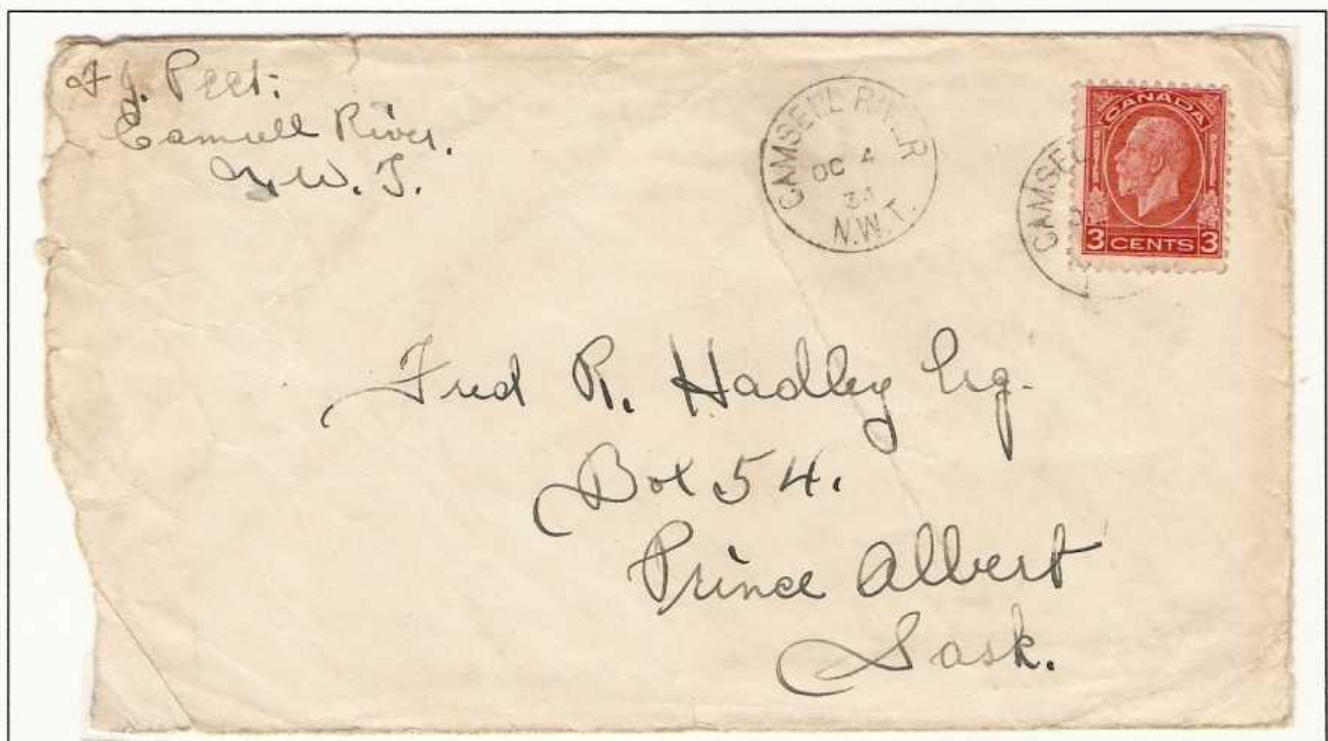 J. Peet.
Camsell River.
N.W.T.
CAMSELL RIVER
OC 4
34
N.W.T.
CANADA
3 CENTS 3
CAMSEL
Fred R. Hadley Esq.
Box 54.
Prince Albert
Sask.